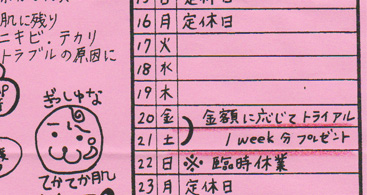 肌に残り
ニキビ．テカリ
トラブルの原因に
ぎっしゅな
てかてか肌
16 月 定休日
17 火
18 水
19 木
20 金 金額に応じてトライアル
21 土 1week分プレゼント
22 日 ※ 臨時休業
23 月 定休日